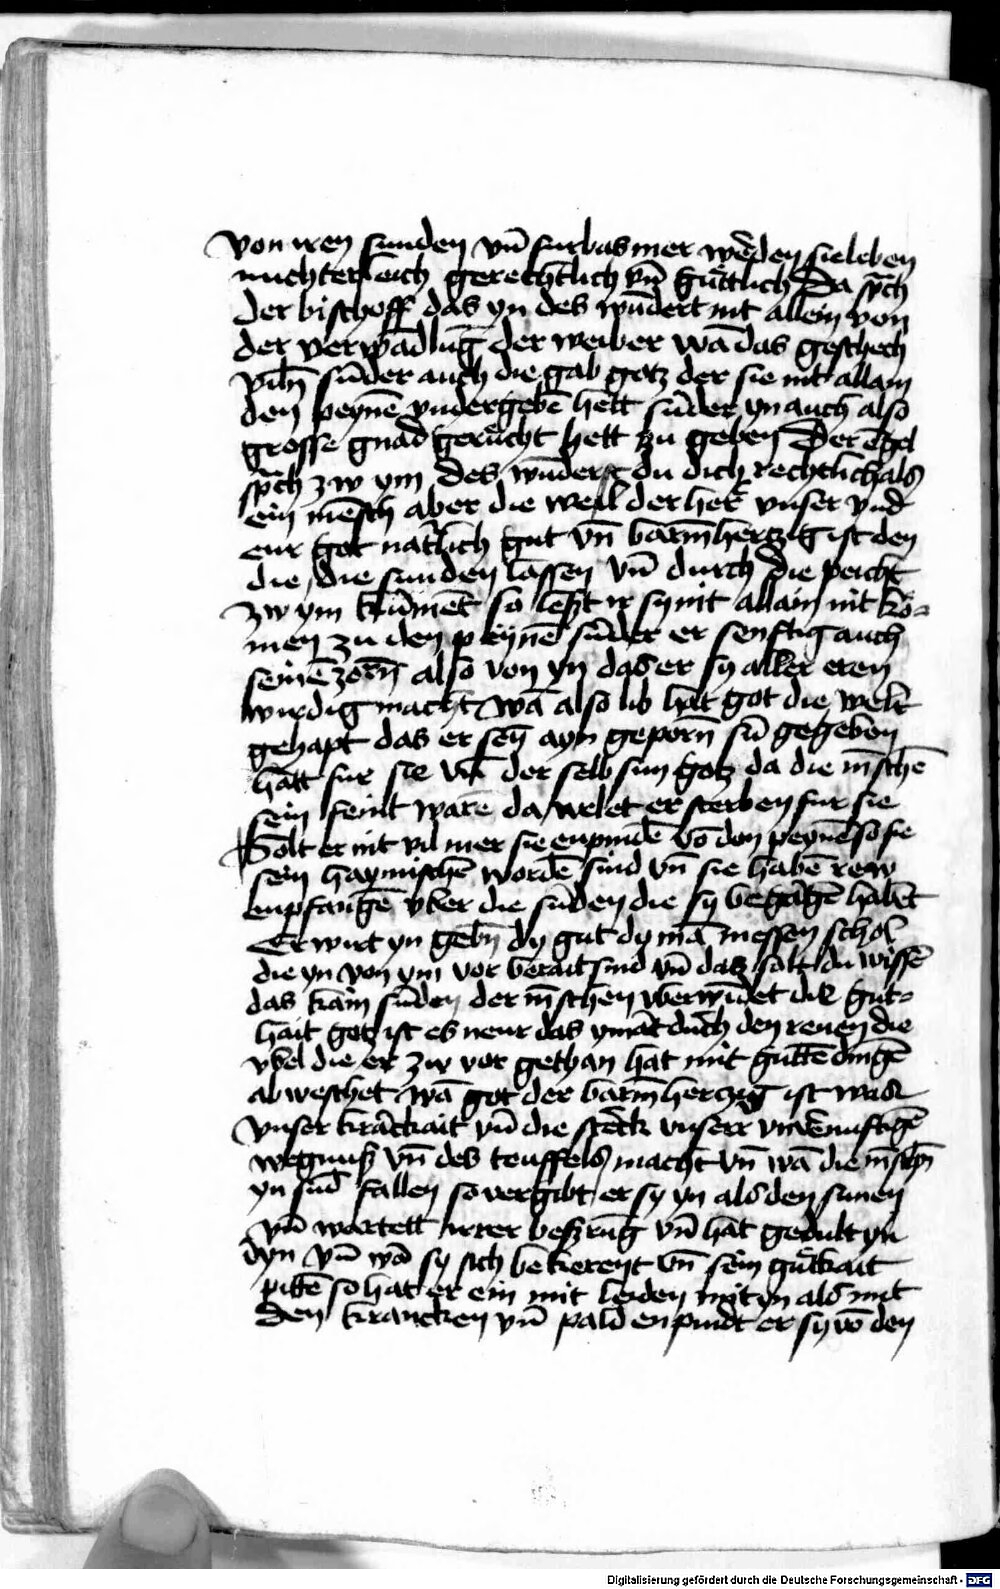 von iren sunden vn̄ furbas mer werden sie leben
nuchterleich gerechtlich vn̄ gůttlich Da sp̄ch
der bischoff das yn des wūdert nit allein von
der verwādlūg der weiber wā das geschech
sūder auch die gab gotz der sie nit allain
den peynē vndergebē hett sūder yn auch also
grosse gnad gerůcht hett zu geben Der ēgel
sp̄ch zw ym des wūderst du dich rechtlich als
ein mēsch aber die weil der her vnser vnd
eur got natr̄lich gut vn̄ barm̄hertzig ist den
die die sunden lassen vn̄ durch die peicht
zw ym kūment so leszt er sy nit allain nit ko-
men zu den peynē sūder er senftig auch
seinē zorn̄ also von yn das er sy aller eren
wirdig macht wā also lib hat got die welt
gehapt das er sein ayn geporn̄ sū gegeben
hatt fur sie vn̄ der selb sun gotz da die m̄schē
sein feint warē da welet er sterben fur sie
Solt er nit vil mer sie enpindē vō den peynē so sie
sein haymischē wordē sind vn̄ sie habē rew
enpfangē vber die sūden die sy begāgē habēt
Er wirt yn gebn̄ dy gut dy mā messen schol
die yn von ym vor berait sind vn̄ daz solt du wissē
das kain sūden der m̄schen vberwīdet die gut-
hait gotz ist es neur das ymāt durch den reuen die
vbel die er zw vor gethan hat mit guttē dingē
abweschet wā got der barm̄herczig ist wais
vnser krāckait vn̄ die sterck vnserr vnvernuftigē
wegnusz vn̄ des teuffels macht vn̄ wā die m̄schn̄
yn sūd fallen so vergibt er sy yn als den sunen
vn̄ wartett irrer beszrūg vn̄ hat gedult yn
yn vn̄ wā sy sich bekerent vn̄ sein gůtkait
pittē so hat er ein mit leiden mit yn als mit
den krancken vn̄ pald enpindt er sy vō den
Digitalisierung gefördert durch die Deutsche Forschungsgemeinschaft - DFG